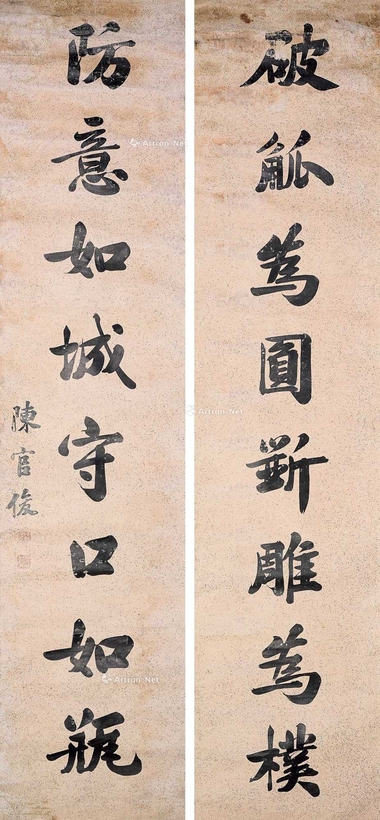 破觚為圓斵雕為樸
防意如城守口如瓶
陳官俊
Artron.Net
Artron.Net
Artron.Net